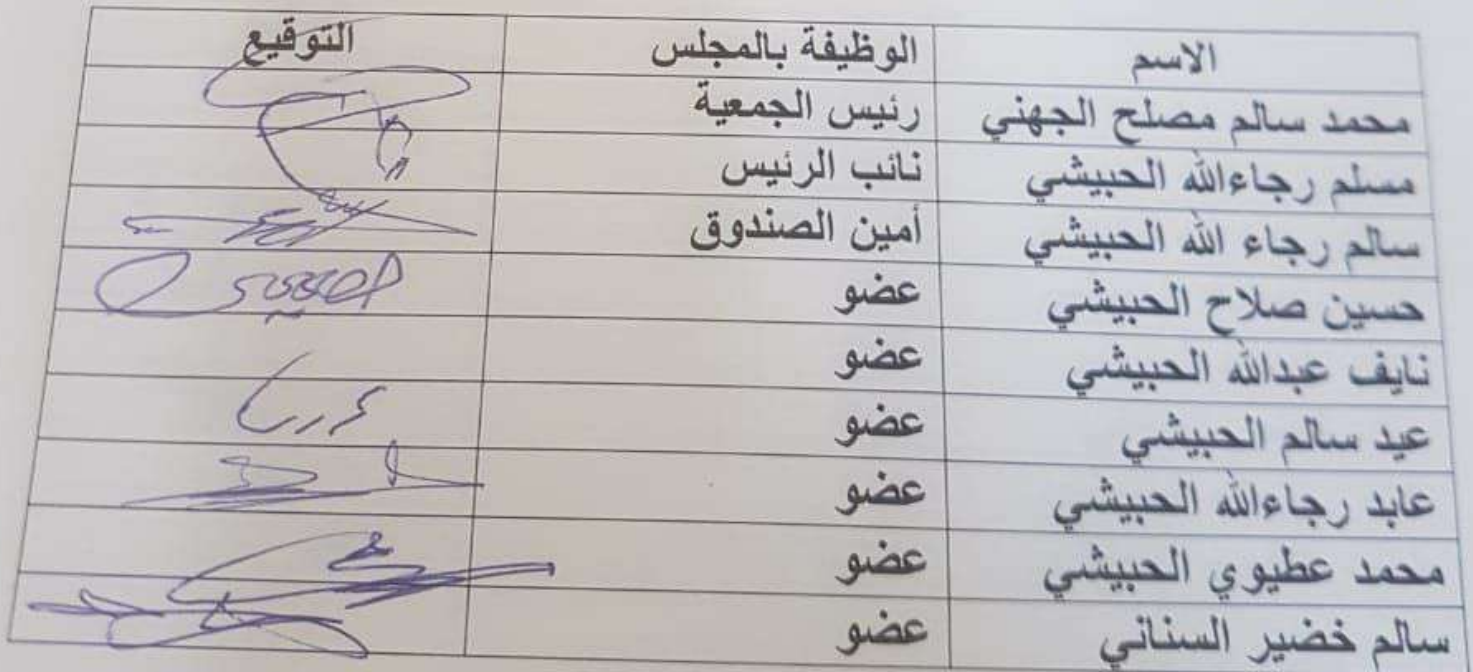 الاسم الوظيفة بالمجلس التوقيع
محمد سالم مصلح الجهني رئيس الجمعية
مسلم رجاءالله الحبيشي نائب الرئيس
سالم رجاء الله الحبيشي أمين الصندوق
حسين صلاح الحبيشي عضو
نايف عبدالله الحبيشي عضو
عيد سالم الحبيشي عضو
عابد رجاءالله الحبيشي عضو
محمد عطيوي الحبيشي عضو
سالم خضير السناني عضو